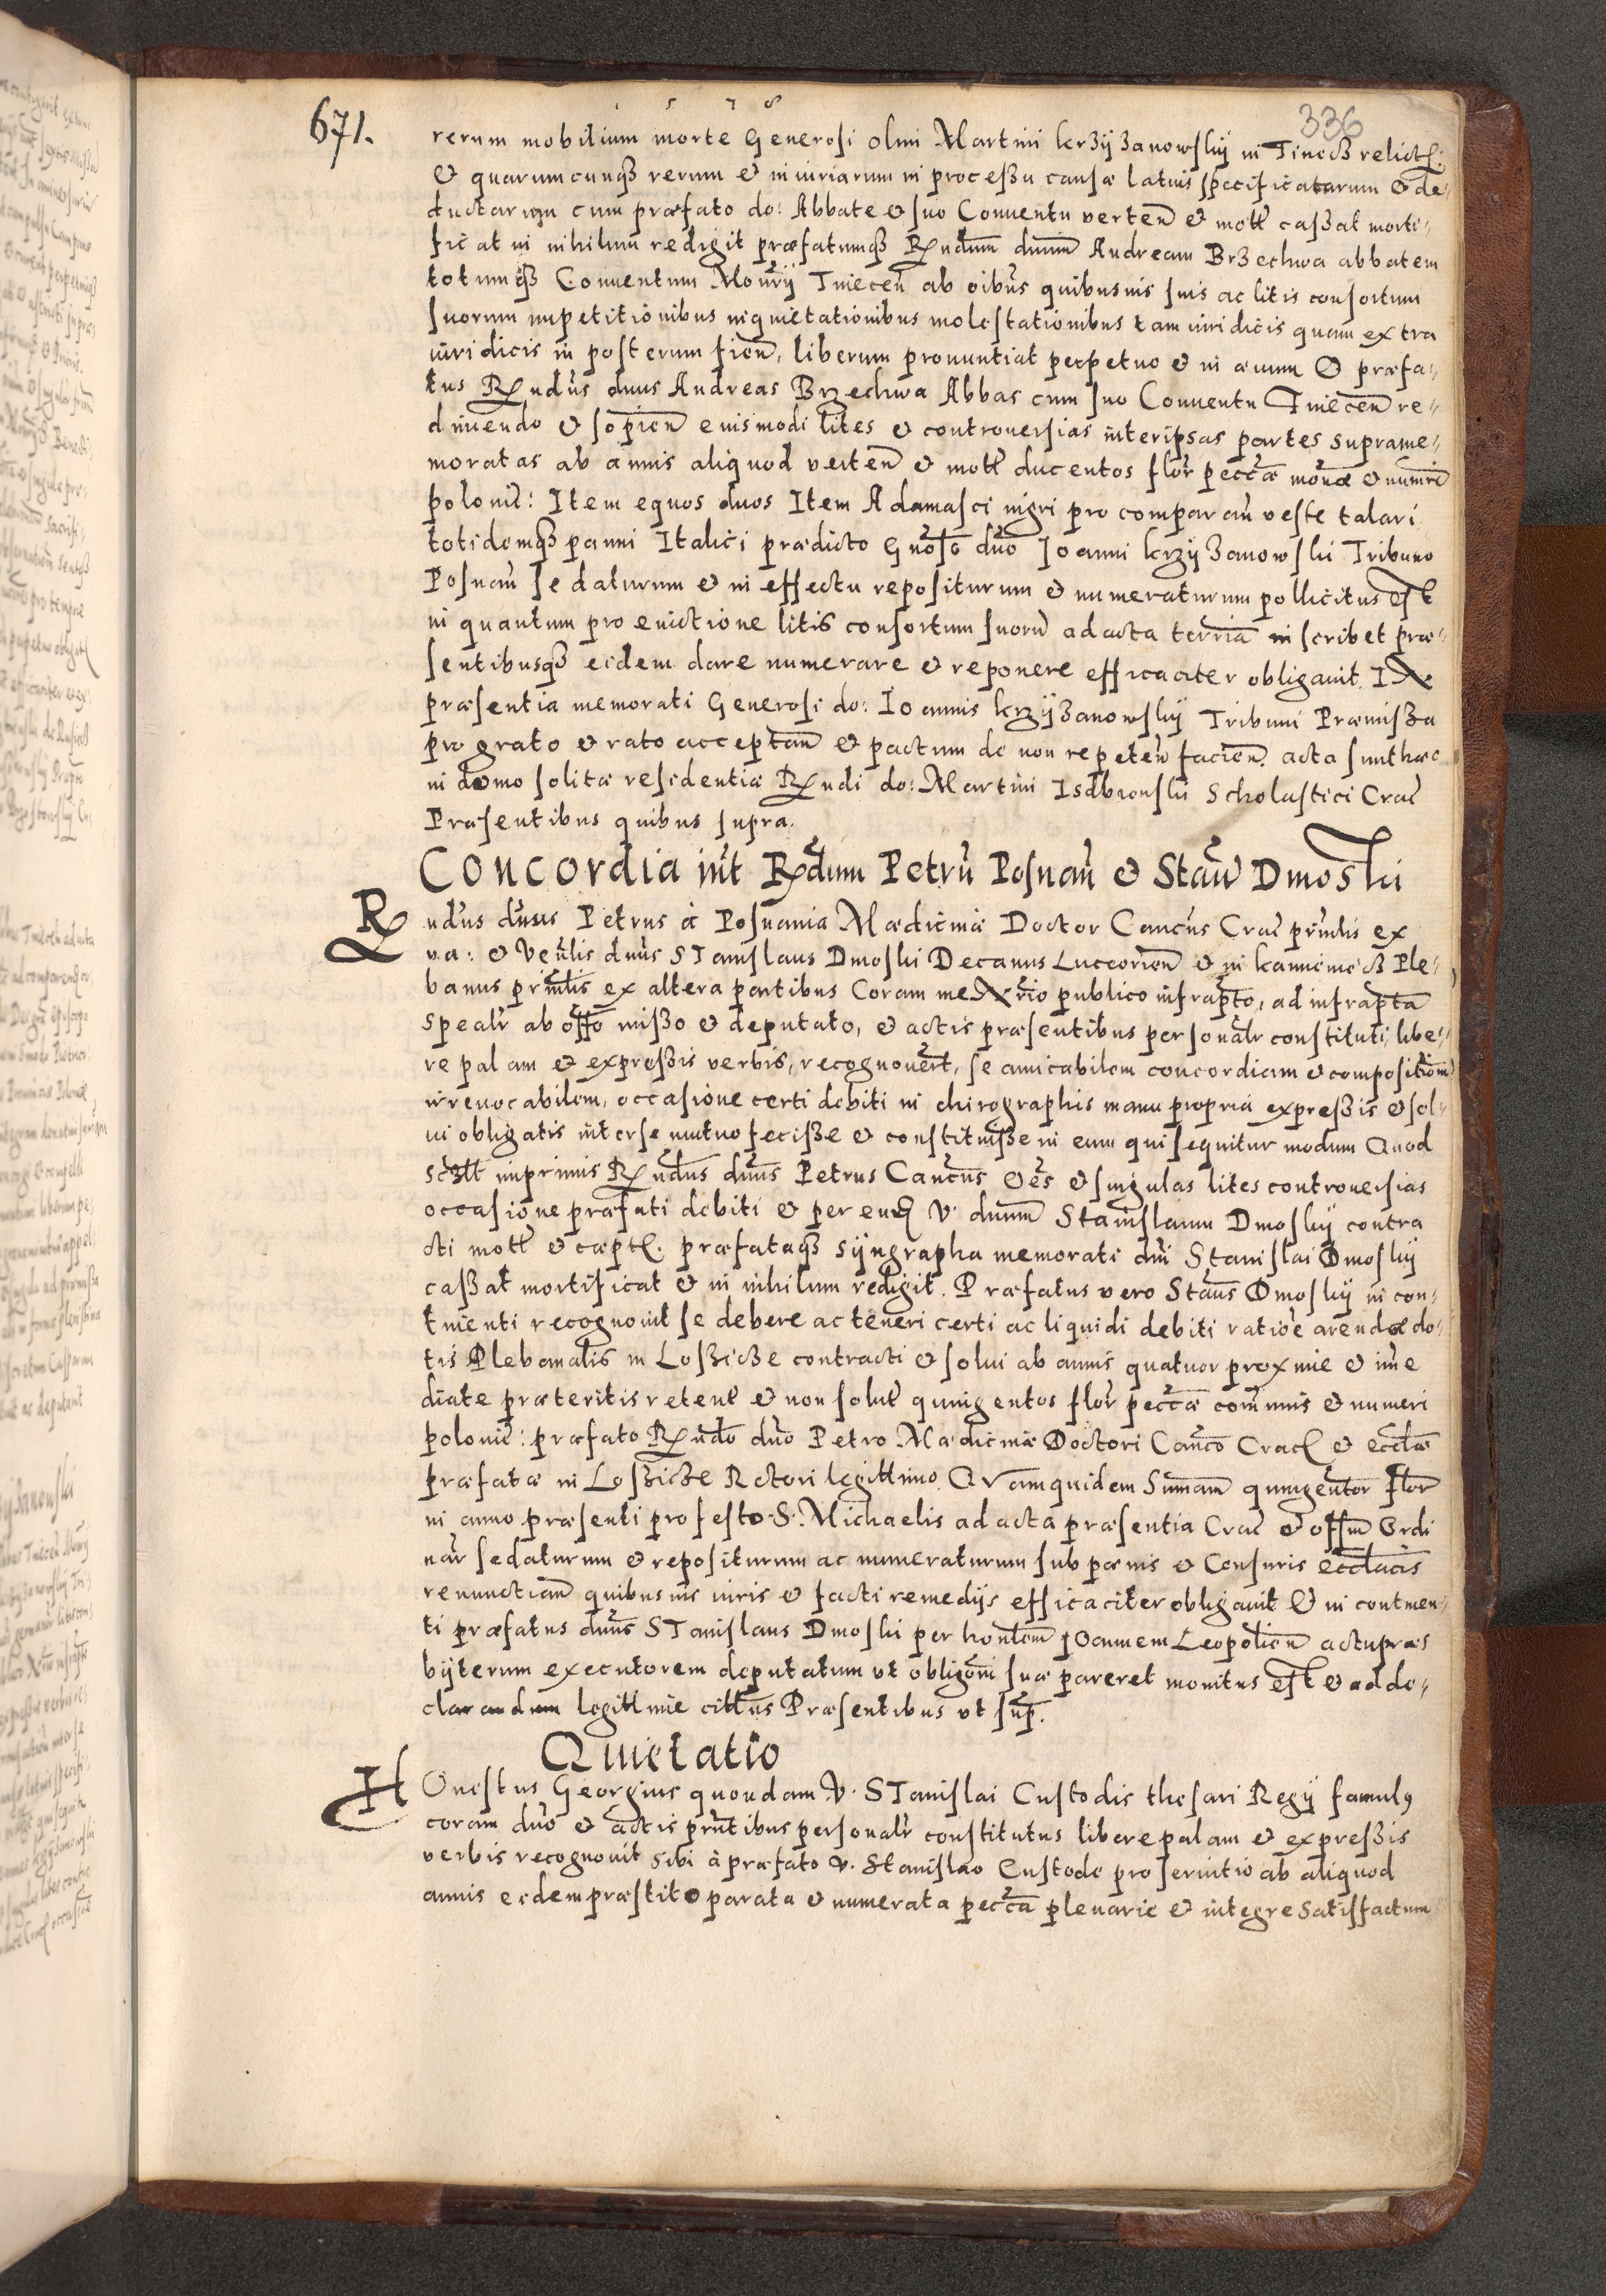 1 5 7 8
336
671.
rerum mobilium morte Generosi olim Martini krzÿzanowskÿ in Tinecz relict:
& quarumcunqз rerum & iniuriarum in processu causæ latius specificatarum & de⸗
ductarum cum præfato do: Abbate & suo Conuentu verteñ & mott cassat morti⸗
ficat in nihilum redigit præfatumqз Rndum dnum Andream Brzechwa abbatem
totumqз Conuentum Monrÿ Tineceñ ab oibus quibusuis suis ac litis consortum
suorum impetitionibus inquietationibus molestationibus tam iuridicis quam extra
iuridicis in posterum fieñ, liberum pronuntiat perpetuo & in æuum & præfa⸗
tus Rndus dnus Andreas Brzechwa Abbas cum suo Conuentu Tineceñ re⸗
dimendo & sopieñ euismodi lites & controuersias interipsas partes suprame⸗
moratas ab annis aliquod verteñ & mott ducentos flor peccæ monæ & numeri
polonic: Item equos duos Item Adamasci nigri pro comparañ veste talari
totidemqз panni Italici prædicto Gnoso dno Joanni krzyzanowski Tribuno
Posnañ se daturum & in effectu repositurum & numeraturum pollicitus est
in quantum pro euictione litis consortum suorũ ad acta terria inscribet præ⸗
sentibusqз eidem dare numerare & reponere efficaciter obligauit. IN
præsentia memorati Generosi do: Ioannis krzÿzanowskÿ Tribuni Præmissa
pro grato & rato acceptañ & pactum de non repeteñ facieñ. acta sunthæc
in domo solitæ residentiæ Rndi do: Martini Isdbienski Scholastici Crac
Præsentibus quibus supra.
Concordia int Rdum Petrũ Posnañ & Stañ Dmoski
Rndus dnus Petrus à Posnania Mædicinæ Doctor Cancus Crac prntis ex
va: & Venlis dnus STanislaus Dmoski Decanus Lucceorieñ & in kamimecz Ple⸗
banus printis ex altera partibus Coram me Nrio publico infrapto, ad infrapta
spealr ab offo misso & deputato, & actis præsentibus personalr constituti libe⸗
re palam & expressis verbis, recognouert, se amicabilem concordiam & compositiom
irreuocabilem, occasione certi debiti in chirographis manu propria expressis & sol⸗
ui obligatis interse mutuo fecisse & constituisse in eum qui sequitur modum Quod
sczt inprimis Rndus dnus Petrus Cancus Oes & singulas lites controuersias
occasione præfati debiti & per eund V. dnum Stanislaum Dmoskÿ contra
cti mott & cæpt. præfataqз sÿngrapha memorati dni Stanislai Dmoskÿ
cassat mortificat & in nihilum redigit. Præfatus vero Staus Dmoskÿ in con⸗
tinenti recognouit se debere ac teneri certi ac liquidi debiti ratioe arendæ do⸗
tis Plebanalis in Loszicze contracti & solui ab annis quatuor proxime & ime
diate præteritis retent & non solut quingentos flor peccæ communis & numeri
polonic: præfato Rndo dno Petro Mædicinæ Doctori Canco Crac & ecclæ
præfatæ in Loszicze Rectori legittimo. QVamquidem Summam quingentor flor
in anno præsenti pro festo S. Michaelis ad acta præsentia Crac & offm Ordi
nar se daturum & repositurum ac numeraturum sub pænis & Censuris ecclacis
renunctiañ quibusuis iuris & facti remedÿs efficaciter obligauit & in contmen⸗
ti præfatus dnus STanislaus Dmoski per hontem Joannem Leopolieñ actupræs
bÿterum executorem deputatum vt obligoni suæ pareret monitus est & ad de⸗
clarandum legittime cittus Præsentibus vt sup.
Quietatio
HOnestus Georgius quondam V. STanislai Custodis thesari Regÿ famulꝯ
coram dno & actis prntibus personalr constitutus libere palam & expressis
verbis recognouit sibi à præfato V. Stanislao Custode pro seruitio ab aliquod
annis eidem præstito parata & numerata pecca plenarie & integre satisfactum